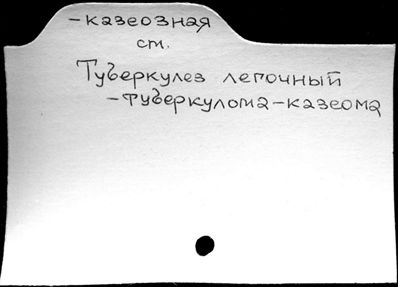 -казеозная
ст.
Туберкулез легочный
-туберкулома-казеома